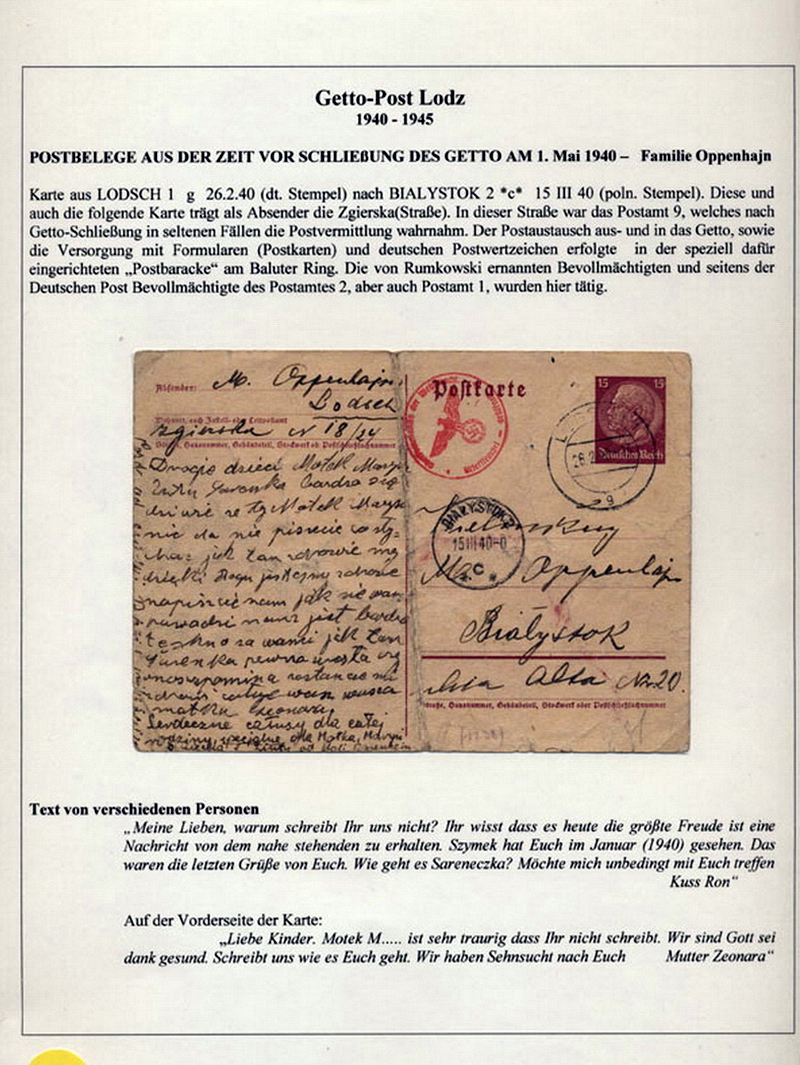 Getto-Post Lodz
1940 - 1945
POSTBELEGE AUS DER ZEIT VOR SCHLIEßUNG DES GETTO AM 1. Mai 1940 – Familie Oppenhajn
Karte aus LODSCH 1 g 26.2.40 (dt. Stempel) nach BIALYSTOK 2 *c* 15 III 40 (poln. Stempel). Diese und
auch die folgende Karte trägt als Absender die Zgierska(Straße). In dieser Straße war das Postamt 9, welches nach
Getto-Schließung in seltenen Fällen die Postvermittlung wahrnahm. Der Postaustausch aus- und in das Getto, sowie
die Versorgung mit Formularen (Postkarten) und deutschen Postwertzeichen erfolgte in der speziell dafür
eingerichteten „Postbaracke“ am Baluter Ring. Die von Rumkowski ernannten Bevollmächtigten und seitens der
Deutschen Post Bevollmächtigte des Postamtes 2, aber auch Postamt 1, wurden hier tätig.
Absender: M. Oppenhajn
Lodsch
Zgierska N 18/24
Straße, Hausnummer, Gebäudeteil, Stockwerk od. Postschließfachnummer
Drogie dzieci Motek
bardzo się
że ty Motek
nic do nas piszecie
jak tam zdrowie my
dzięki Bogu jesteśmy zdrowie
napiszcie nam jak się wam
nam jest bardzo
za wami jak tam
pewno
matka Zeonara
Serdeczne całusy dla całej
rodziny
Postkarte
15 15
Deutsches Reich
g
BIAŁYSTOK 2
15 III 40-0
c
Oppenhajn
Białystok
Alta Nr. 20.
Straße, Hausnummer, Gebäudeteil, Stockwerk oder Postschließfachnummer
Text von verschiedenen Personen
„Meine Lieben, warum schreibt Ihr uns nicht? Ihr wisst dass es heute die größte Freude ist eine
Nachricht von dem nahe stehenden zu erhalten. Szymek hat Euch im Januar (1940) gesehen. Das
waren die letzten Grüße von Euch. Wie geht es Sareneczka? Möchte mich unbedingt mit Euch treffen
Kuss Ron“
Auf der Vorderseite der Karte:
„Liebe Kinder. Motek M..... ist sehr traurig dass Ihr nicht schreibt. Wir sind Gott sei
dank gesund. Schreibt uns wie es Euch geht. Wir haben Sehnsucht nach Euch Mutter Zeonara“